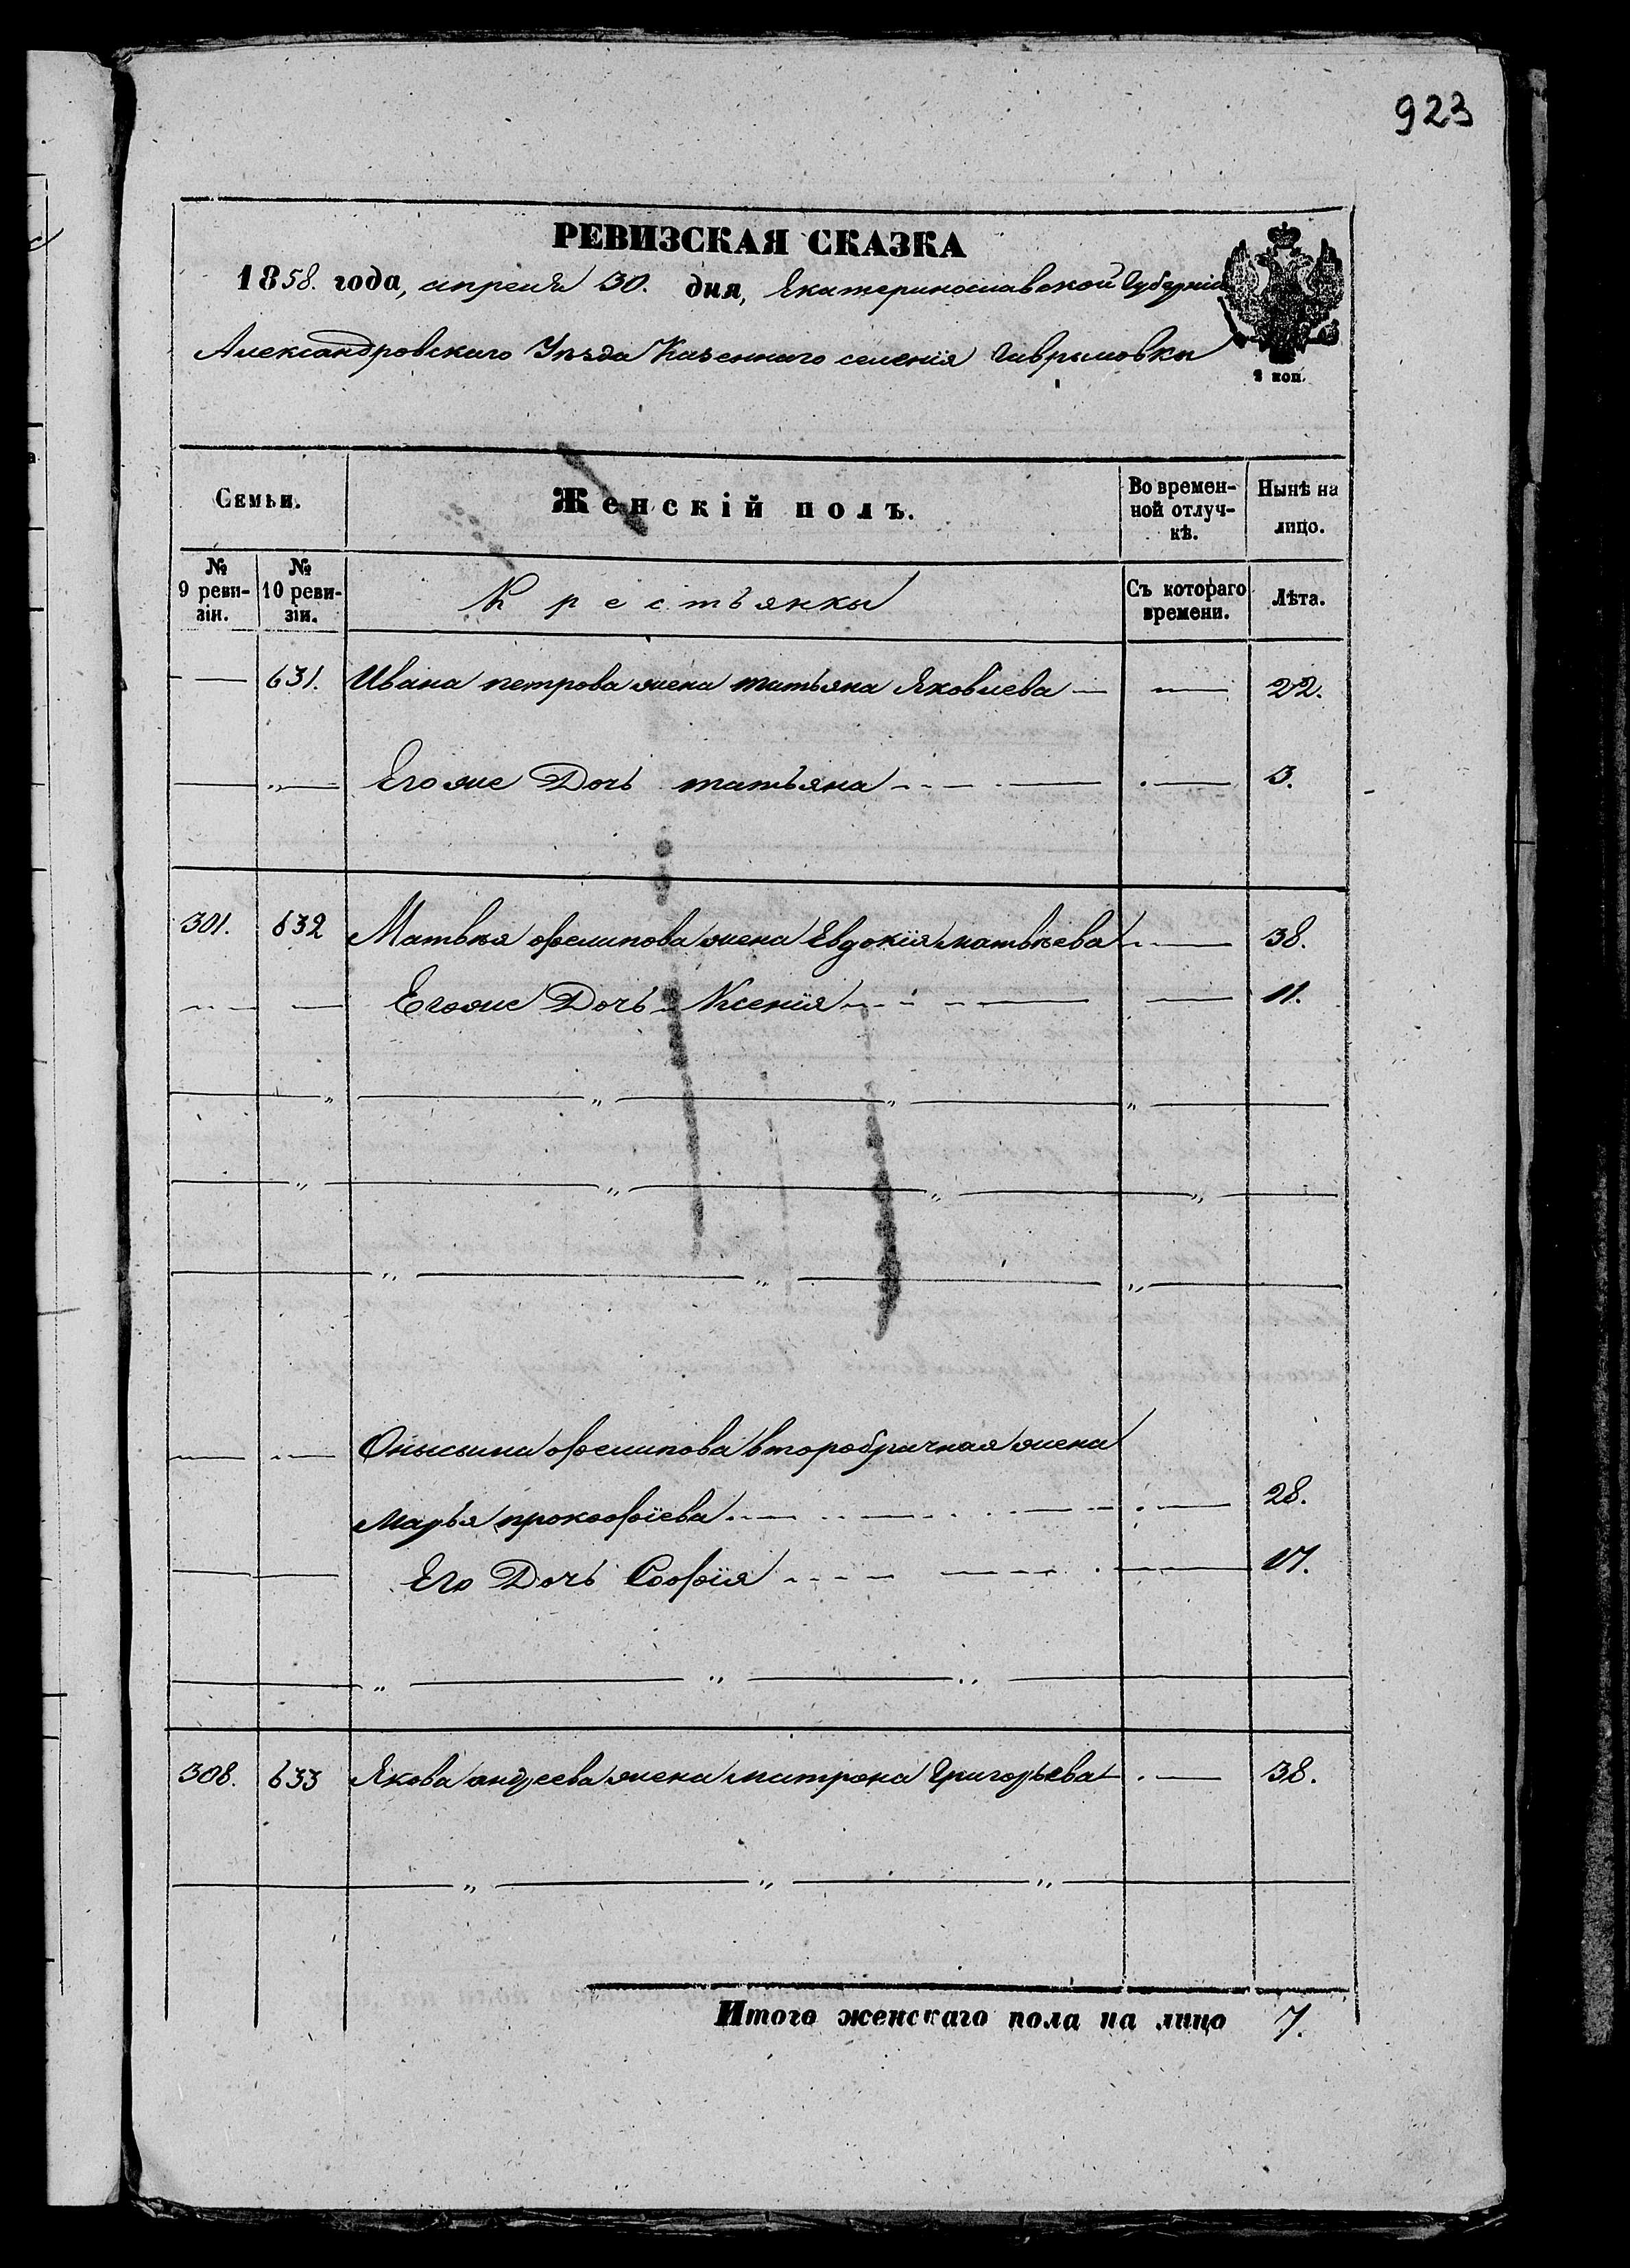 923
РЕВИЗСКАЯ СКАЗКА
1858. года, апреля 30. дня, Екатеринославской Губерніи
Александровскаго Уѣзда Казенного селенія Гаврыловки
2 коп.
Семьи. Женскій полъ. Во времен- Нынѣ на
ной отлуч- лицо.
кѣ.
№ № Крестьянки Съ котораго Лѣта.
9 реви- 10 реви- времени.
зіи. зіи.
631. Ивана петрова жена татьяна Яковлева — 22.
Его же Дочь татьяна 3.
301. 632 Матвѣя филипова жена Евдокія матвѣева 38.
Его же Дочь Ксенія 11.
Онысыма филипова второбрачная жена
марья прокофіева 28.
Его Дочь Софія 17.
308. 633 Якова андреева жена матрона Григорьева 38.
Итого женскаго пола на лицо 7.